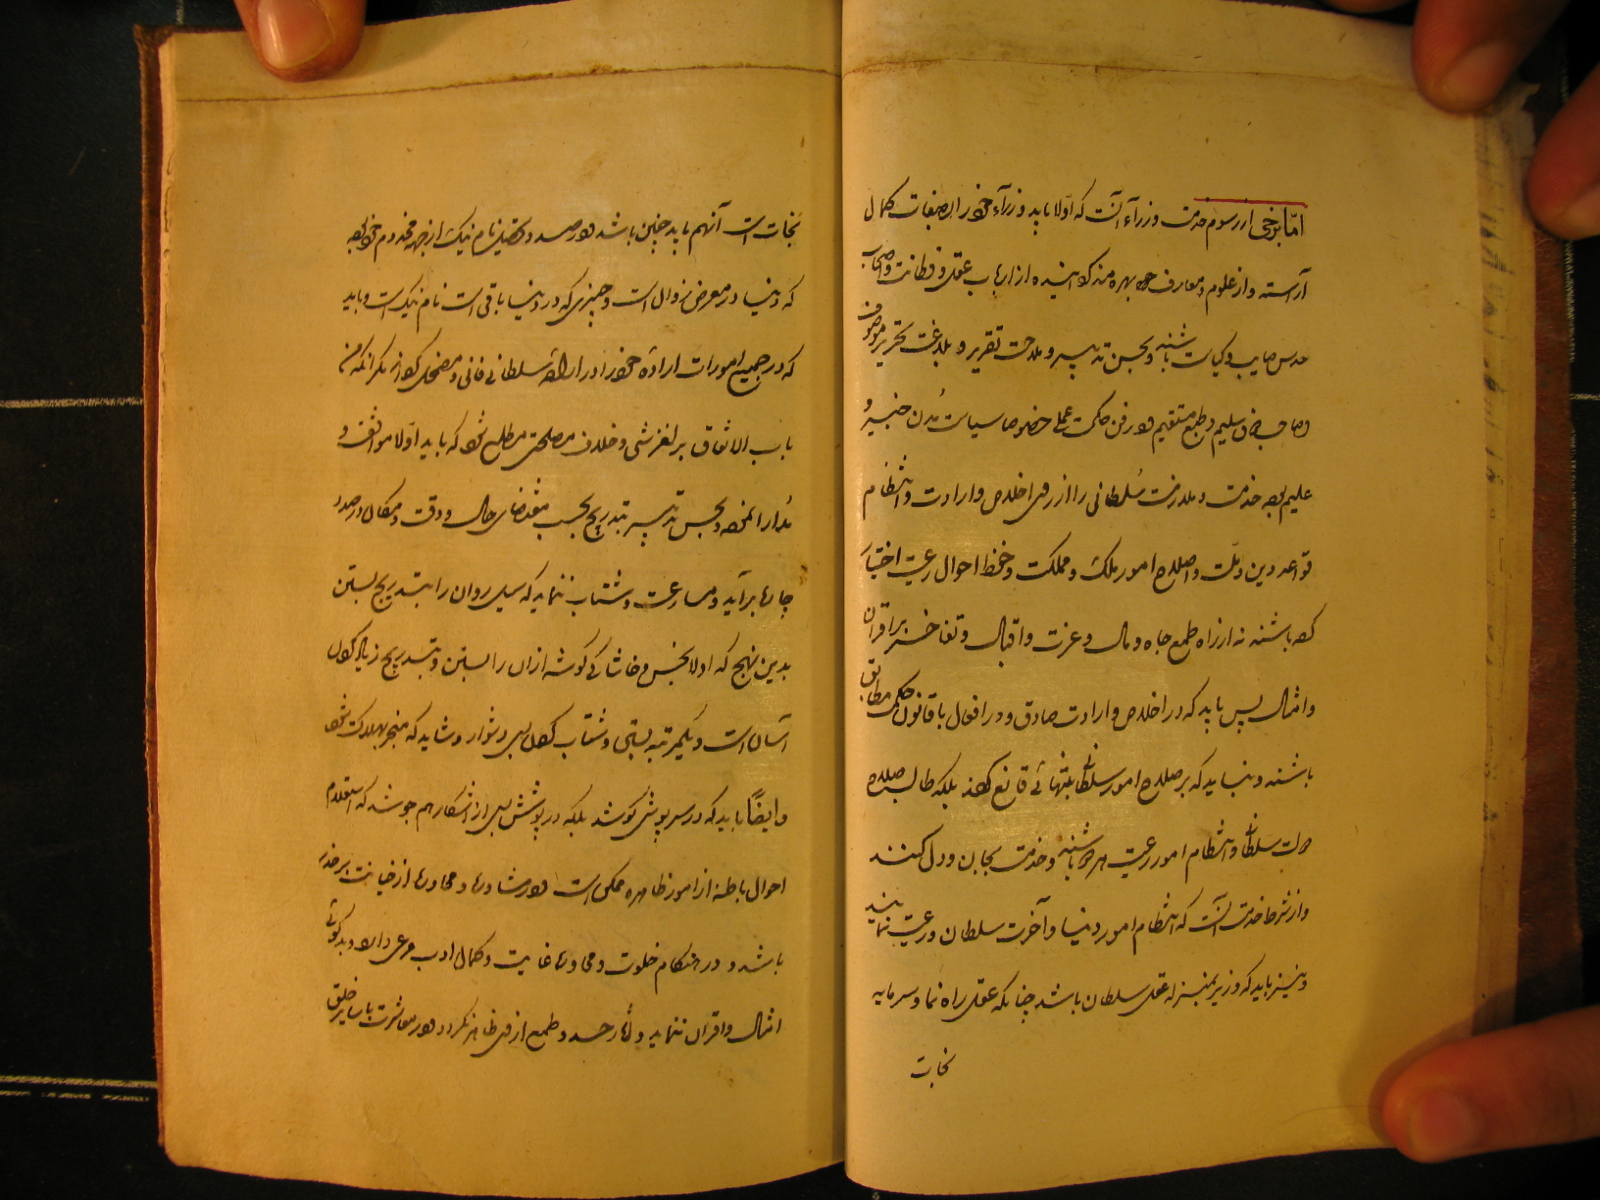 امّا برخی از رسوم خدمت وزرآء آنست که اوّلا باید وزرآء خود را بصفات کمال
آراسته و از علوم و معارف بهره مند کردانیده از ارباب عقل و فطانت و اصحاب
حدس صایب و کیاست باشند و بحسن تدبیر و ملاحت تقریر و بلاغت تحریر موصوف
و صاحب ذهن سلیم و طبع مستقیم و در فن حکمت عملی خصوصا سیاست مُدن خبیر و
علیم بوده خدمت و ملازمت سُلطانی را از روی اخلاص و ارادت و انتظام
قواعد دین و ملّت و اصلاح امور ملک و مملکت و حفظ احوال رعیت اختیار
کرده باشند نه از راه طمع جاه و مال و عزت و اقبال و تفاخر بر اقران
و امثال پس باید که در اخلاص و ارادت صادق و در افعال با قانون حکمی مطابق
باشند و نباید که بر صلاح امور سلطان بتنهائی قانع کردند بلکه طالب صلاح
دولت سلطان و انتظام امور رعیت هر دو باشند و خدمت بجان و دل کنند
و از شرط خدمت آنست که انتظام امور دنیا و آخرت سلطان و رعیت نمایند
و نیز باید که وزیر بمنزله عقل سلطان باشد چنانکه عقل راه نما و سرمایه
نجات
نجات است آنهم باید چنین باشد و در صدد تحصیل نام نیک از جهة مخدوم خود بوده
که دنیا در معرض زوال است و چیزی که در دنیا باقی است نام نیک است و باید
که در جمیع امورات ارادهٔ خود را در ارادهٔ سلطانی فانی و مضمحل کرداند مکر آنکه من
باب الاتفاق بر لغزشی و خلاف مصلحتی مطلع شود که باید اوّلا موافقت و
مُدارا نموده و بحسن تدبیر بتدریج بحسب مقتضای حال و وقت و مکان در صدد
چاره برآید و مسارعت و شتاب ننماید که سیل روان را بتدریج بستن
بدین نهج که اولا بخس و خاشاک گوشه از آن را بستن و بتدریج زیاد کردن
آسان است و یکمرتبه بستن و شتاب کردن بسی دشوار و شاید که منجر بهلاکت شود
و ایضاً باید که در سرپوشی کوشد بلکه در پوشش بسی از آشکار هم جوشد که استعلام
احوال باطنه از امور ظاهره ممکن است و در مشاوره و محاوره از خیانت بر حذر
باشد و در هنکام خلوت و محاوره غایت و کمال ادب مرعی دارد و بدکوئی
امثال و اقران ننماید و آثار حسد و طمع از وی ظاهر نکردد و در معاشرت با سایر خلق